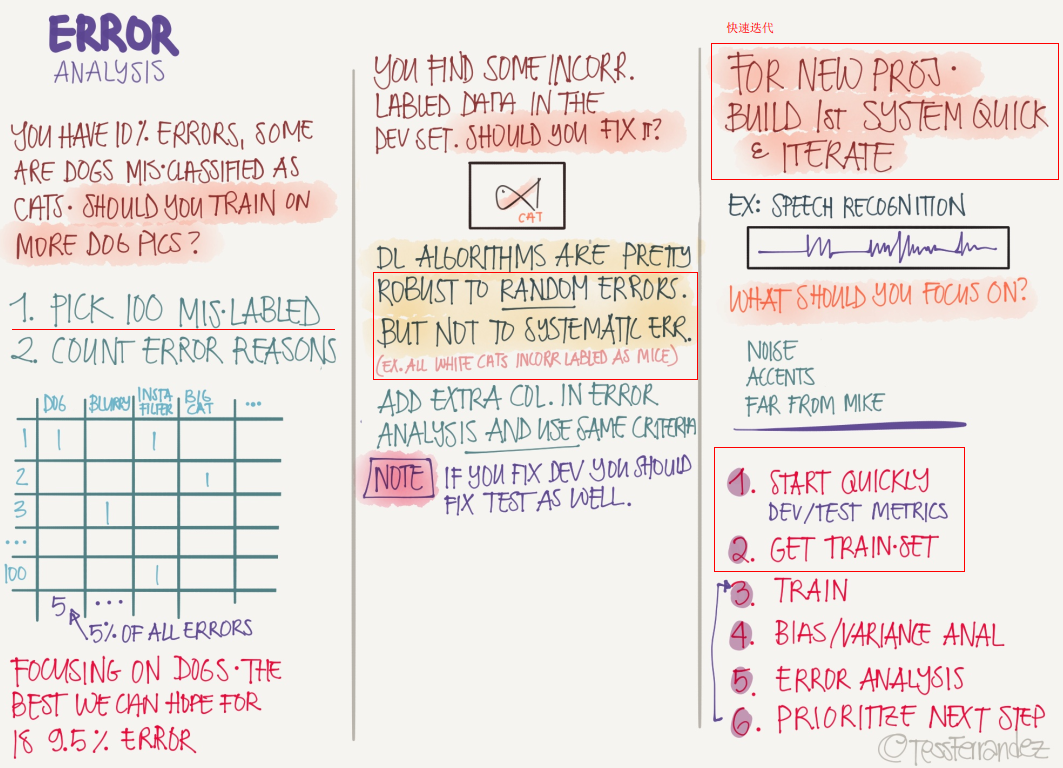 ERROR
ANALYSIS
YOU HAVE 10% ERRORS, SOME
ARE DOGS MIS·CLASSIFIED AS
CATS· SHOULD YOU TRAIN ON
MORE DOG PICS?
1. PICK 100 MIS·LABLED
2. COUNT ERROR REASONS
DOG BLURRY INSTA FILTER BIG CAT ...
1 1 1
2 1
3 1
...
100 1
5 ...
5% OF ALL ERRORS
FOCUSING ON DOGS· THE
BEST WE CAN HOPE FOR
IS 9.5% ERROR
YOU FIND SOME INCORR.
LABLED DATA IN THE
DEV SET. SHOULD YOU FIX IT?
CAT
DL ALGORITHMS ARE PRETTY
ROBUST TO RANDOM ERRORS.
BUT NOT TO SYSTEMATIC ERR.
(EX. ALL WHITE CATS INCORR LABLED AS MICE)
ADD EXTRA COL. IN ERROR
ANALYSIS AND USE SAME CRITERIA
NOTE IF YOU FIX DEV YOU SHOULD
FIX TEST AS WELL.
快速迭代
FOR NEW PROJ·
BUILD 1st SYSTEM QUICK
& ITERATE
EX: SPEECH RECOGNITION
WHAT SHOULD YOU FOCUS ON?
NOISE
ACCENTS
FAR FROM MIKE
1. START QUICKLY
DEV/TEST METRICS
2. GET TRAIN·SET
3. TRAIN
4. BIAS/VARIANCE ANAL
5. ERROR ANALYSIS
6. PRIORITIZE NEXT STEP
©TessFerrandez